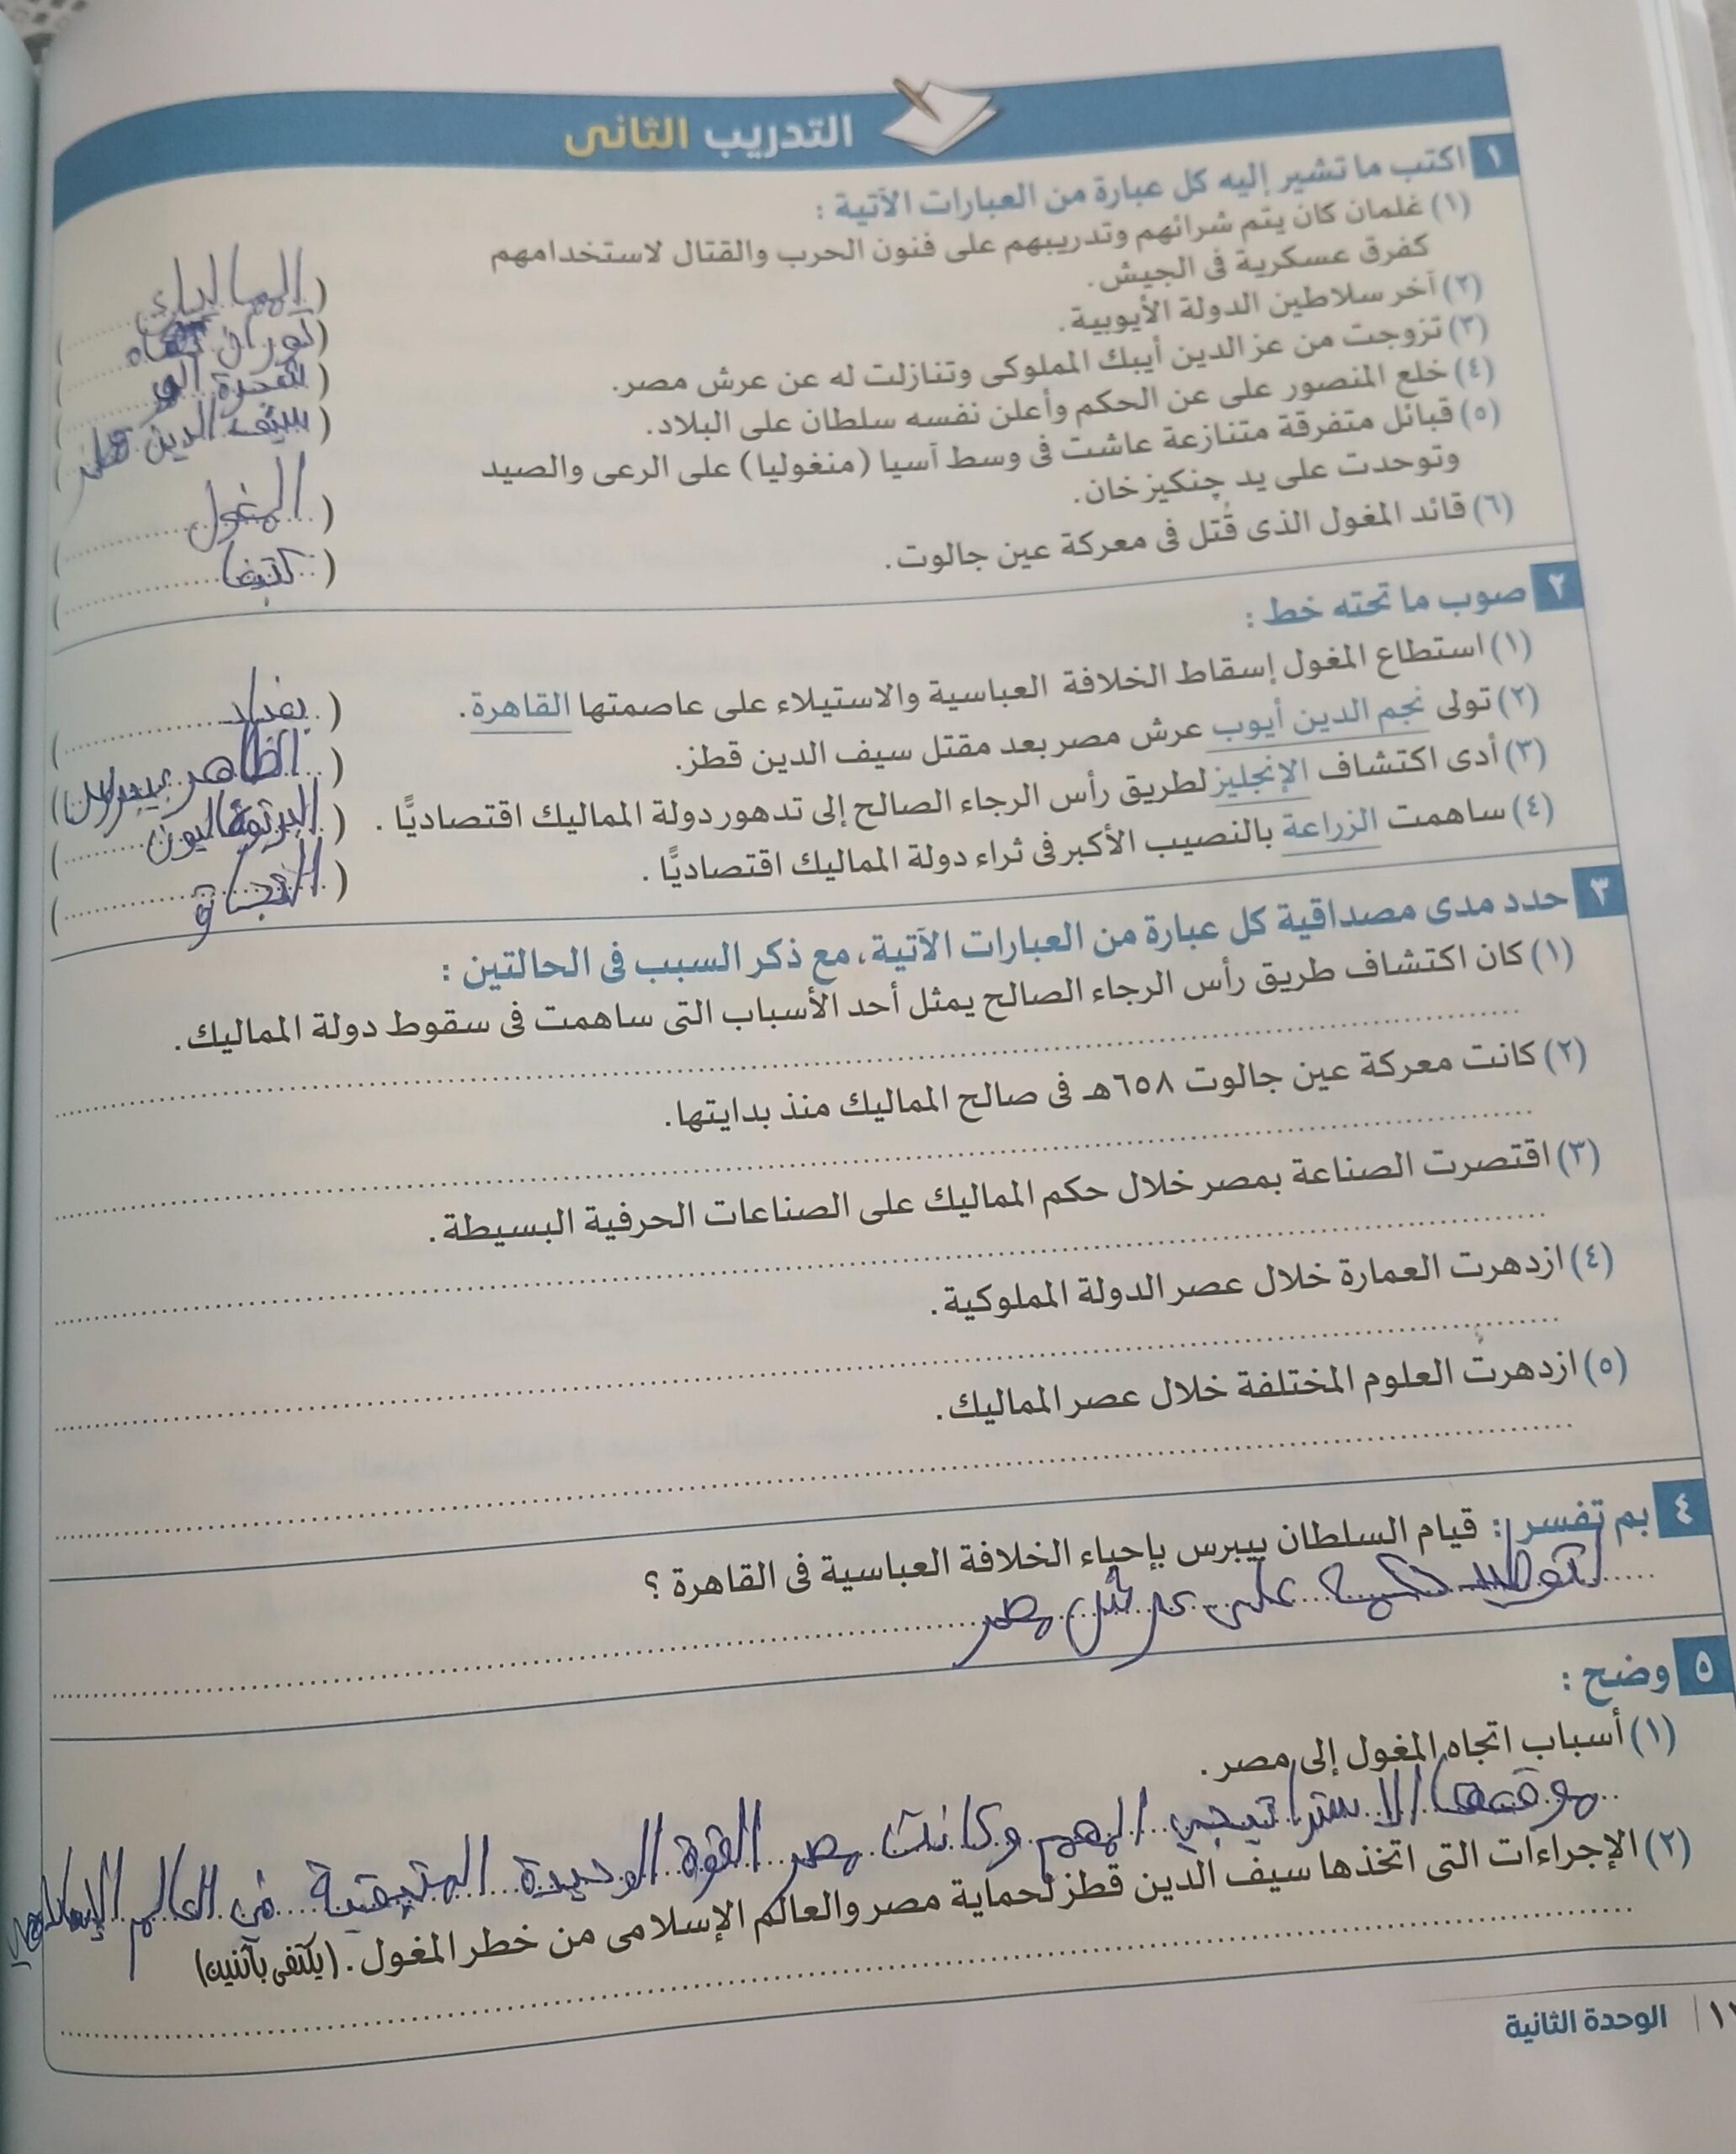 التدريب الثانى
١ اكتب ما تشير إليه كل عبارة من العبارات الآتية :
(١) غلمان كان يتم شرائهم وتدريبهم على فنون الحرب والقتال لاستخدامهم
كفرق عسكرية فى الجيش. (المماليك)
(٢) آخر سلاطين الدولة الأيوبية. (توران شاه)
(٣) تزوجت من عز الدين أيبك المملوكى وتنازلت له عن عرش مصر. (شجرة الدر)
(٤) خلع المنصور على عن الحكم وأعلن نفسه سلطان على البلاد. (سيف الدين قطز)
(٥) قبائل متفرقة متنازعة عاشت فى وسط آسيا (منغوليا) على الرعى والصيد
وتوحدت على يد چنكيز خان. (المغول)
(٦) قائد المغول الذى قُتل فى معركة عين جالوت. (كتبغا)
٢ صوب ما تحته خط :
(١) استطاع المغول إسقاط الخلافة العباسية والاستيلاء على عاصمتها القاهرة. (بغداد)
(٢) تولى نجم الدين أيوب عرش مصر بعد مقتل سيف الدين قطز. (الظاهر بيبرس)
(٣) أدى اكتشاف الإنجليز لطريق رأس الرجاء الصالح إلى تدهور دولة المماليك اقتصاديًّا. (البرتوغاليون)
(٤) ساهمت الزراعة بالنصيب الأكبر فى ثراء دولة المماليك اقتصاديًّا. (التجارة)
٣ حدد مدى مصداقية كل عبارة من العبارات الآتية، مع ذكر السبب فى الحالتين :
(١) كان اكتشاف طريق رأس الرجاء الصالح يمثل أحد الأسباب التى ساهمت فى سقوط دولة المماليك.
(٢) كانت معركة عين جالوت ٦٥٨هـ فى صالح المماليك منذ بدايتها.
(٣) اقتصرت الصناعة بمصر خلال حكم المماليك على الصناعات الحرفية البسيطة.
(٤) ازدهرت العمارة خلال عصر الدولة المملوكية.
(٥) ازدهرت العلوم المختلفة خلال عصر المماليك.
٤ بم تفسر : قيام السلطان بيبرس بإحياء الخلافة العباسية فى القاهرة ؟
حكمه على عرش مصر
٥ وضح :
(١) أسباب اتجاه المغول إلى مصر.
موقعها الاستراتيجي المهم وكانت مصر القوة الوحيدة المتبقية في العالم الإسلامي
(٢) الإجراءات التى اتخذها سيف الدين قطز لحماية مصر والعالم الإسلامى من خطر المغول. (يكتفى باثنين)
الوحدة الثانية